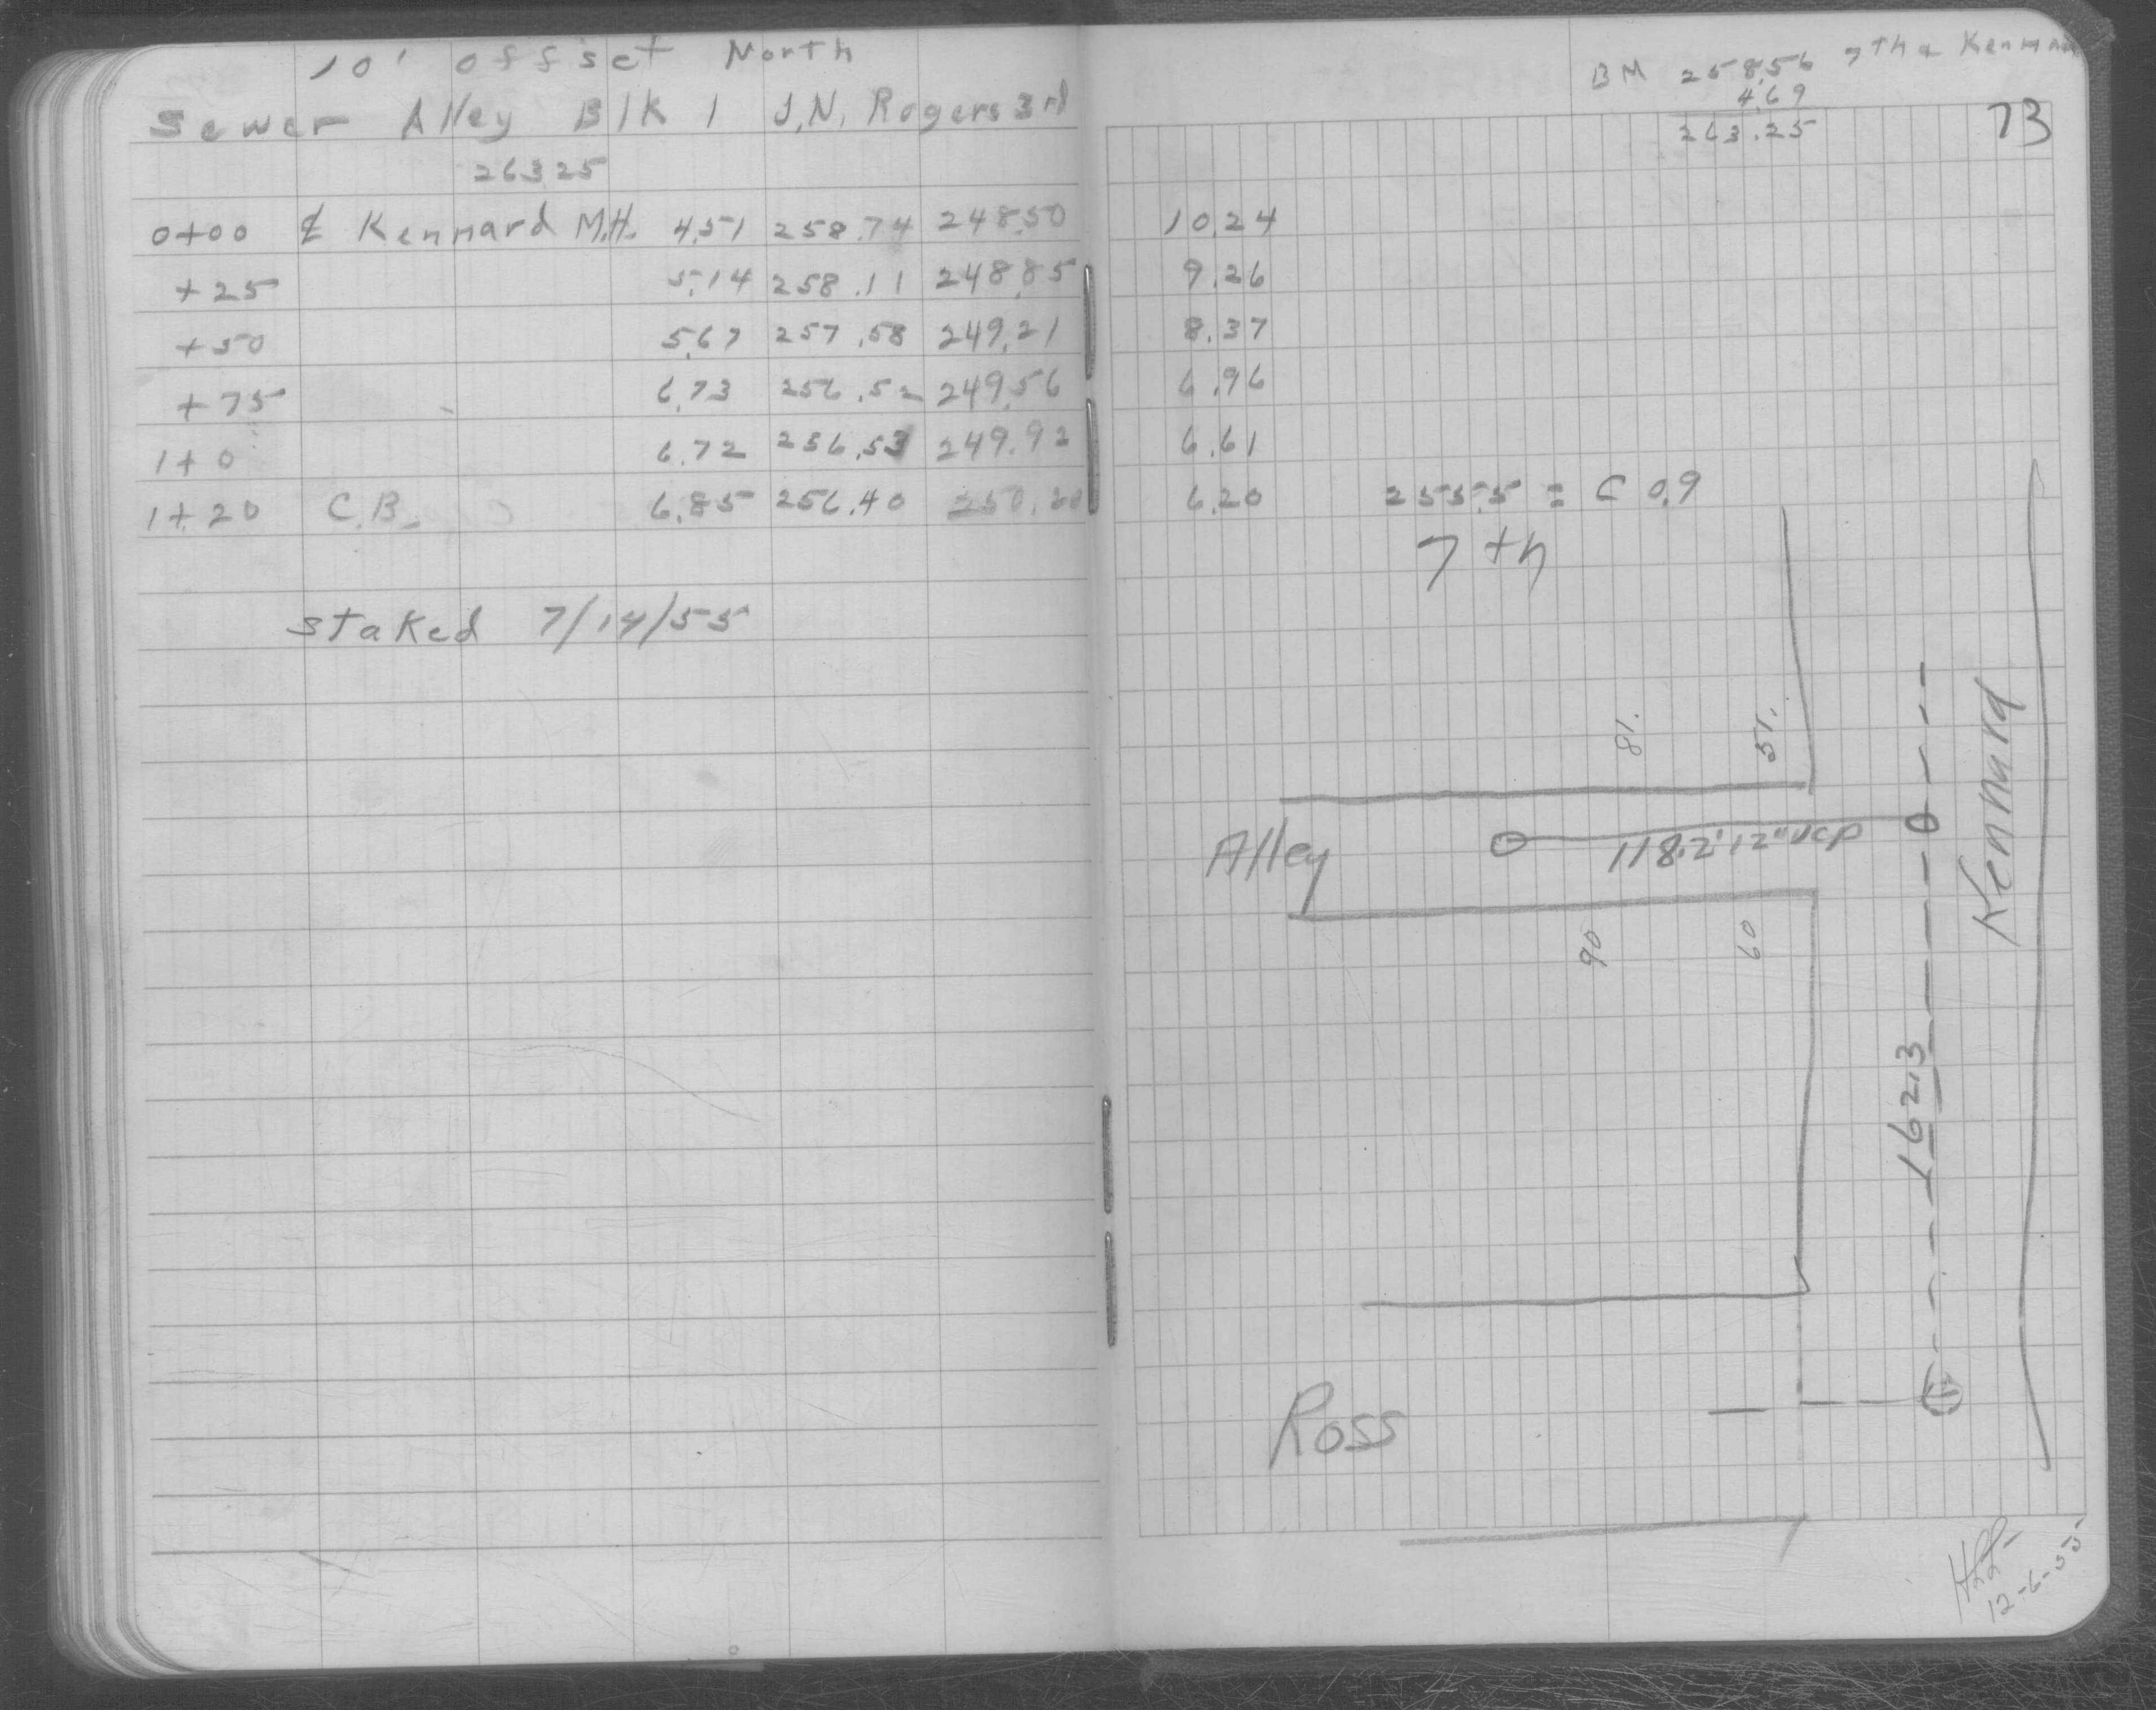 10' offset North
Sewer Alley Blk 1 J.N. Rogers 3rd
263.25
0+00 ℄ Kennard M.H. 4.51 258.74 248.50
+25 5.14 258.11 248.85
+50 5.67 257.58 249.21
+75 6.73 256.52 249.56
1+0 6.72 256.53 249.92
1+20 C.B. 6.85 256.40 250.20
staked 7/14/55
BM 258.56 7th & Kennard
4.69
263.25
73
10.24
9.26
8.37
6.96
6.61
6.20 255.5 = C 0.9
7th
81.
51.
Alley
118.2' 12" VCP
Kennard
90
60
162.3
Ross
12-6-55